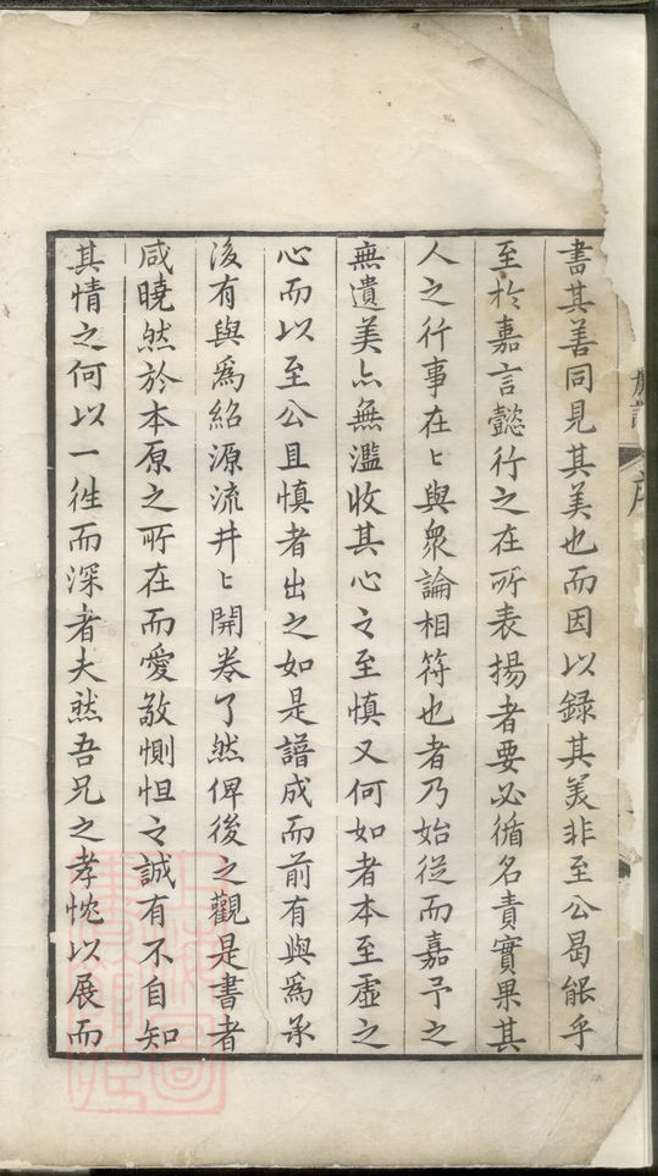 書其善同見其美也而因以録其美非至公曷能乎
至於嘉言懿行之在所表揚者要必循名責實果其
人之行事在〻與衆論相符也者乃始從而嘉予之
無遺美亦無濫收其心之至慎又何如者本至虛之
心而以至公且慎者出之如是譜成而前有與爲承
後有與爲紹源流井〻開卷了然俾後之觀是書者
咸曉然於本原之所在而愛敬惻怛之誠有不自知
其情之何以一往而深者夫然吾兄之孝忱以展而
序
上海圖書館藏